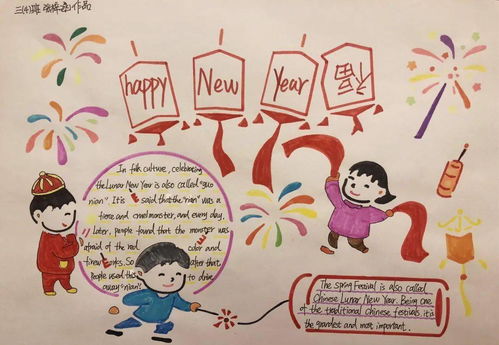 三(4)班 作品
happy New Year 福
In folk culture, celebrating
the Lunar New Year is also called "guo
nian". It is said that the "nian" was a
fierce and cruel monster, and every day,
later, people found that the monster was
afraid of the red color and
fireworks. So after that
People used this to drive
away "nian".
The spring Festival is also called
Chinese Lunar New Year. Being one
of the traditional Chinese festivals. it is
the grandest and most important.